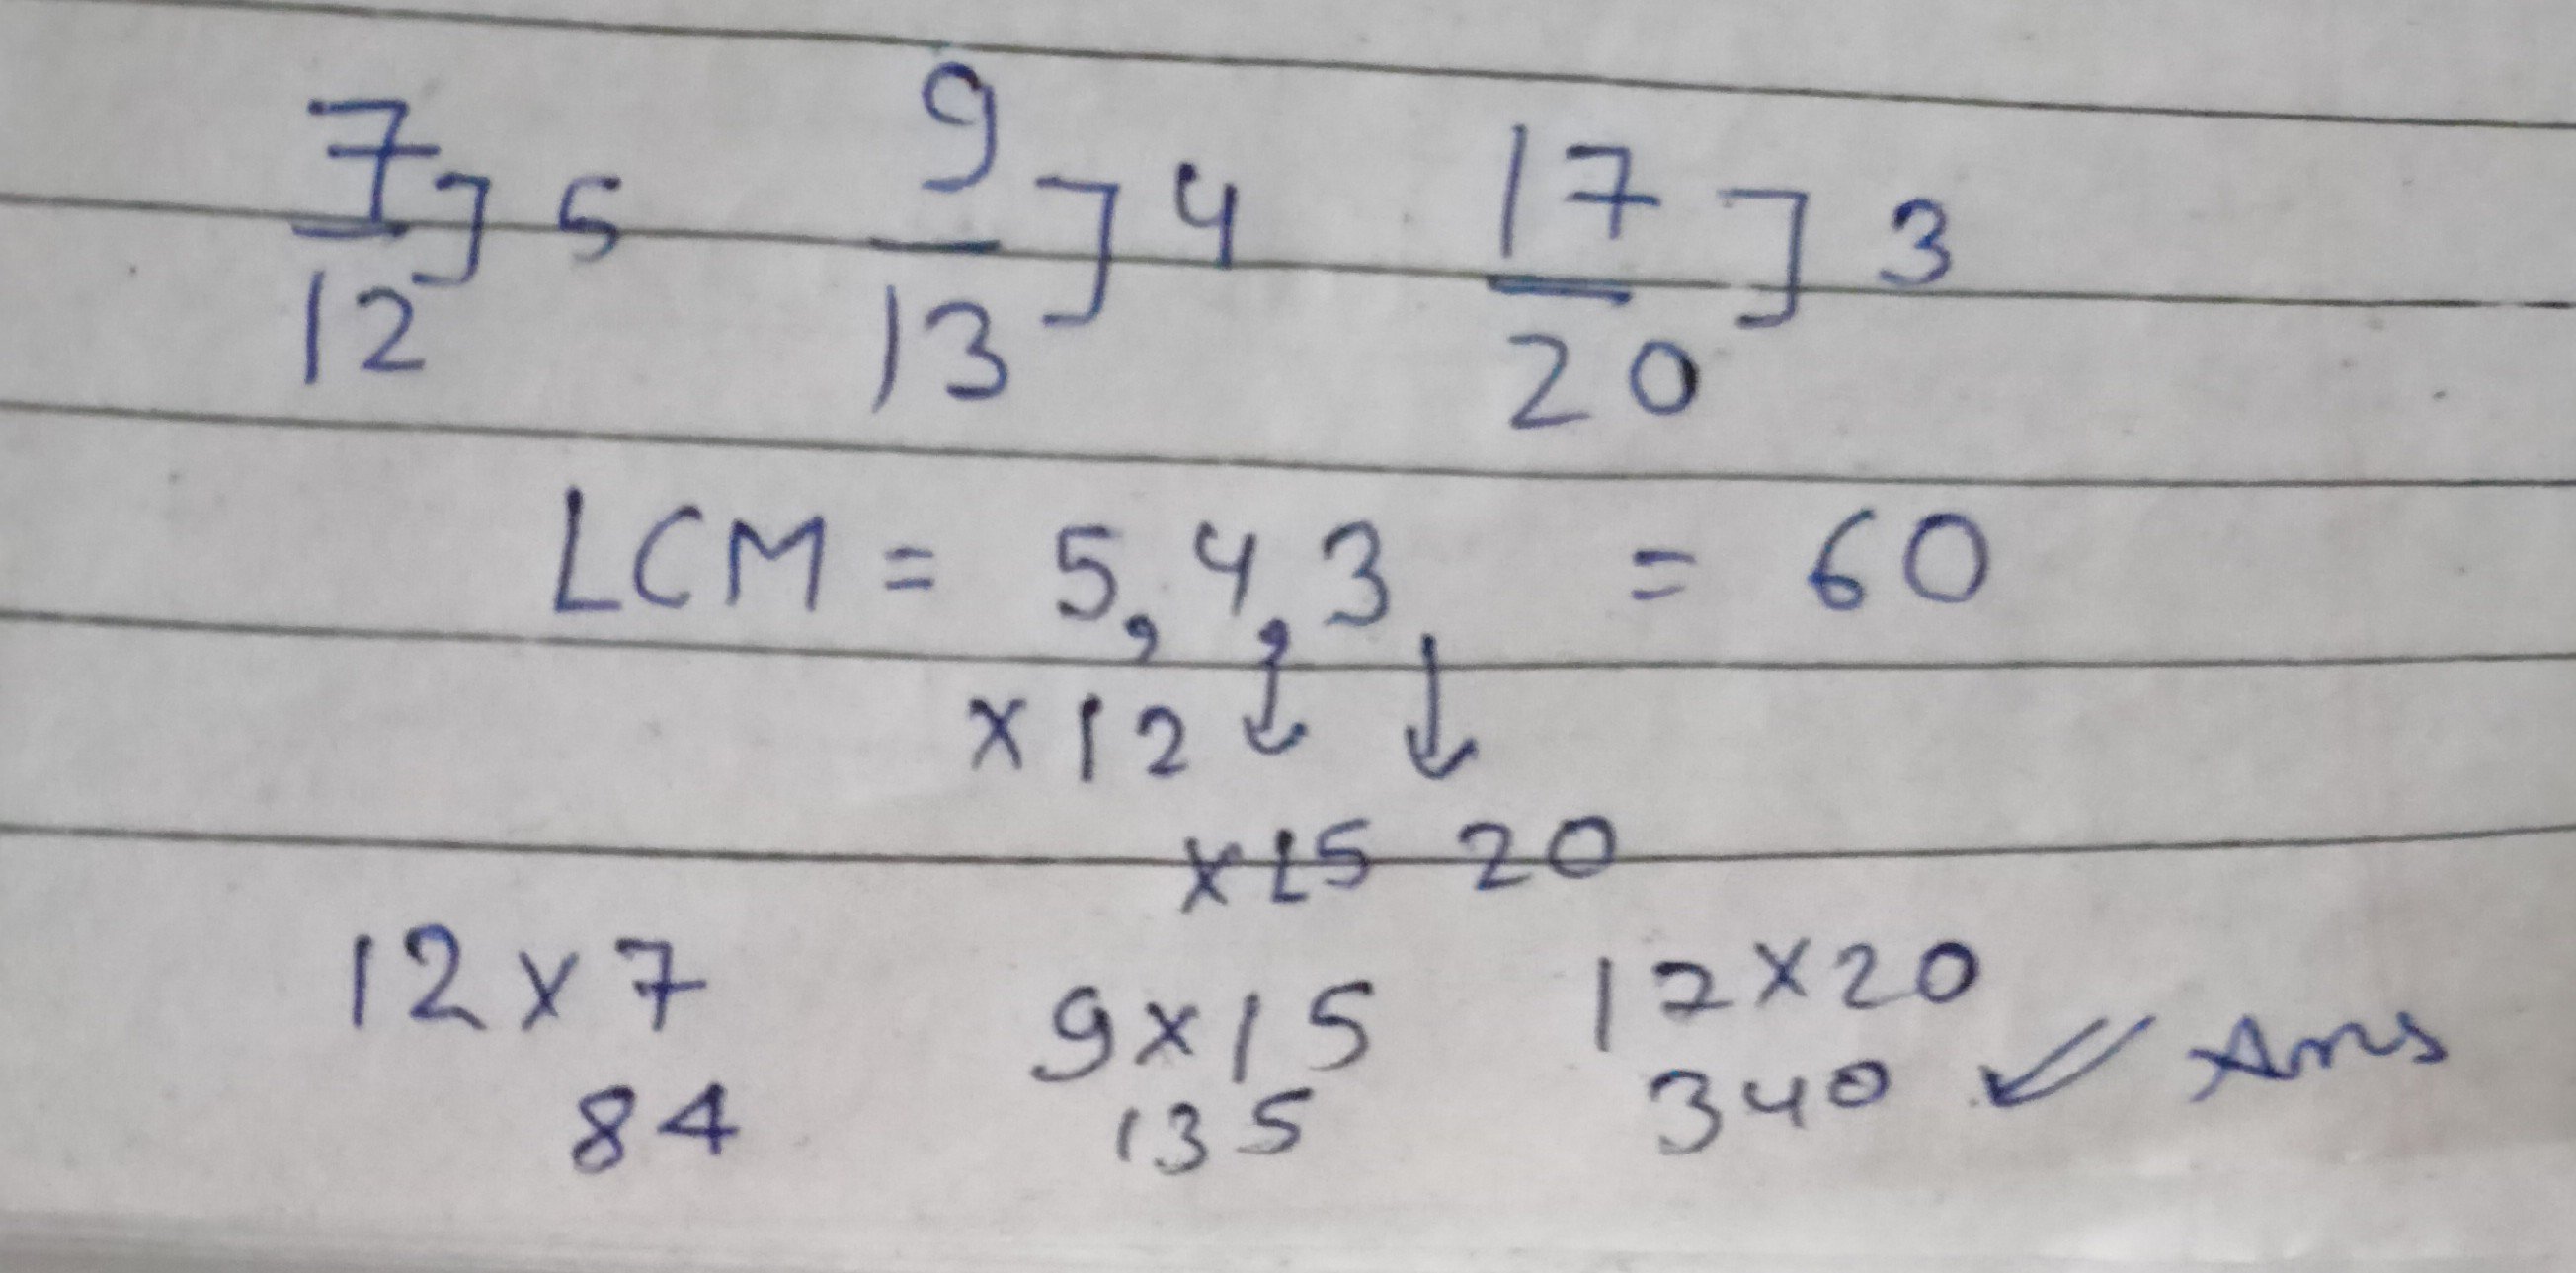 7/12 ] 5 9/13 ] 4 17/20 ] 3
LCM = 5, 4, 3 = 60
×12 ↓ ↓
×15 20
12×7 9×15 17×20
84 135 340 ↙ Ans